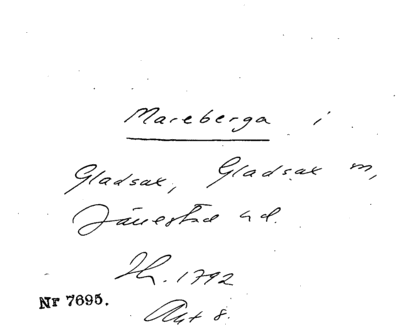 Mareberga i
Gladsax, Gladsax m,
Järrestad hd.
Sk. 1792
Akt 8.
Nr 7695.